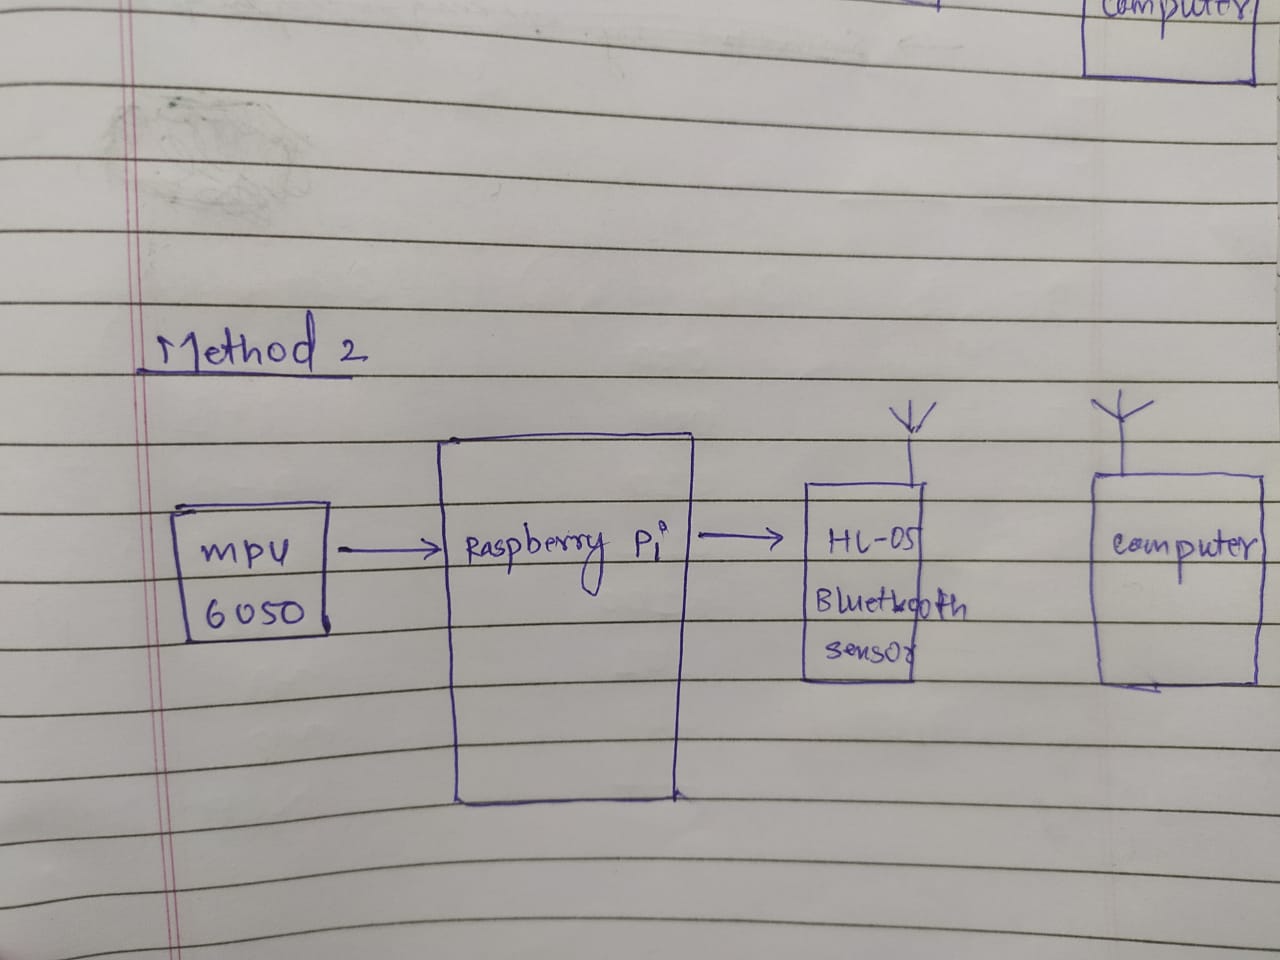 computer
Method 2
mpu
6050
Raspberry Pi
HC-05
Bluethooth
sensor
computer